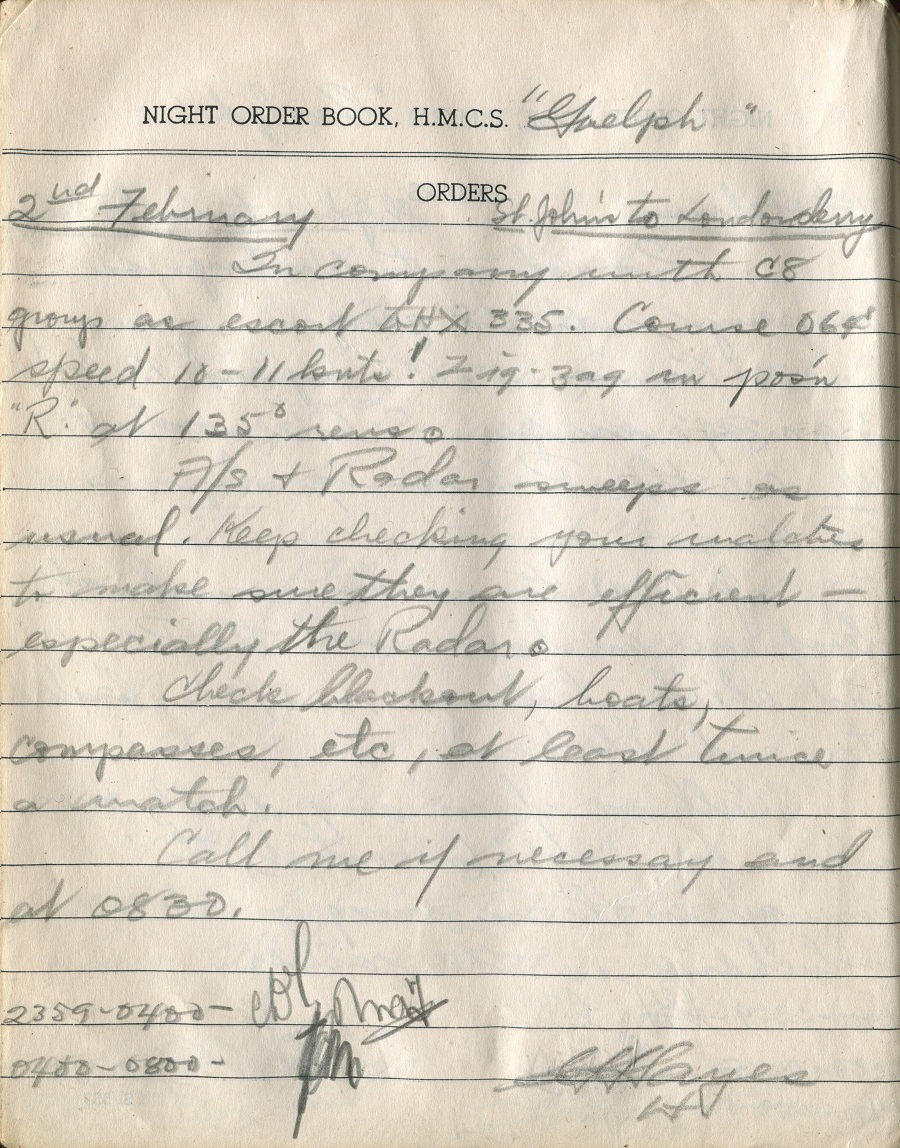 NIGHT ORDER BOOK, H.M.C.S. "Guelph"
ORDERS
2nd February St. John's to Londonderry
In company with C8
group as escort to HX 335. Course 064°
speed 10-11 knots! Zig-zag in pos'n
"R" at 135° revs.
A/S + Radar sweeps as
usual. Keep checking your watches
to make sure they are efficient —
especially the Radar.
Check blackout, boats,
compasses, etc, at least twice
a watch.
Call me if necessary and
at 0830.
2359-0400-
0400-0800-
Hayes